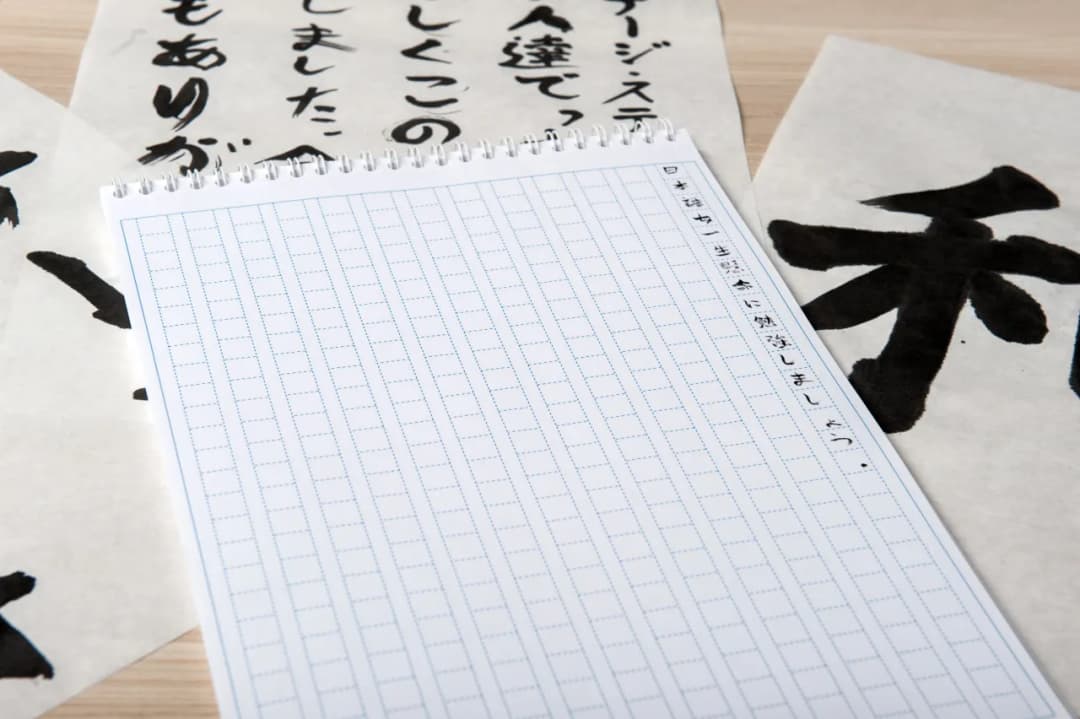 ージ、ステ
人達でっ
しくこの
しました、
もありが
日本語を一生懸命に勉強しましょう.